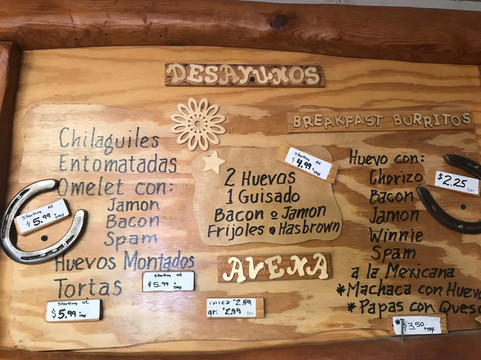 DESAYUNOS
Chilaguiles
Entomatadas
Omelet con:
Jamon
Bacon
Spam
Huevos Montados
Tortas
Starting at
$5.99
Starting at
$5.99
Starting at
$5.99
Starting at
$4.99
2 Huevos
1 Guisado
Bacon o Jamon
Frijoles o Hasbrown
AVENA
chica $2.59
gr. $2.99
BREAKFAST BURRITOS
Huevo con:
Chorizo
Bacon
Jamon
Winnie
Spam
a la Mexicana
*Machaca con Huevo
*Papas con Queso
$2.25
*$3.50